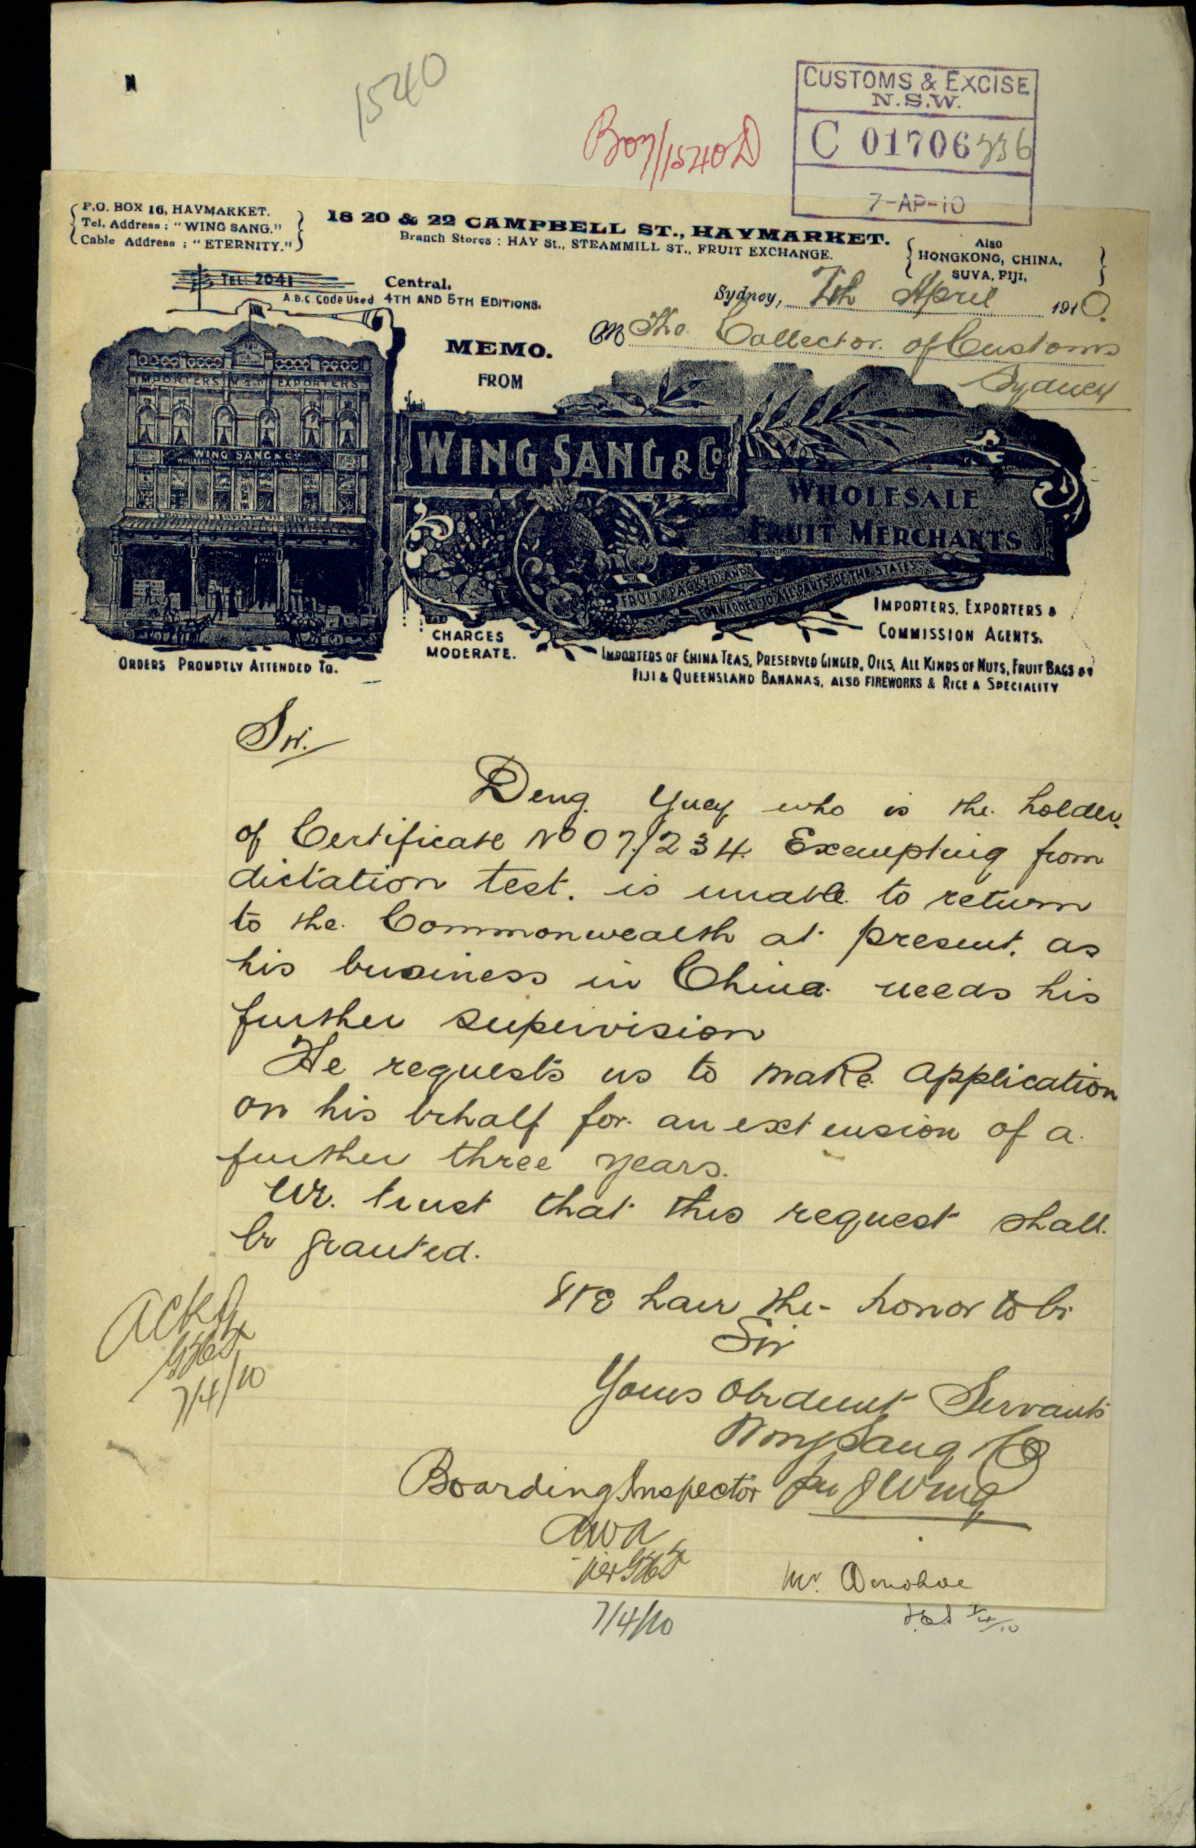 1540
Boy/1540D
CUSTOMS & EXCISE
N.S.W.
C 01706336
7-AP-10
P.O. BOX 16, HAYMARKET.
Tel. Address : "WING SANG."
Cable Address : "ETERNITY."
18 20 & 22 CAMPBELL ST., HAYMARKET.
Branch Stores : HAY St., STEAMMILL ST., FRUIT EXCHANGE.
Also
HONGKONG, CHINA,
SUVA, FIJI.
TEL. 2041
Central.
A.B.C. Code Used 4TH AND 5TH EDITIONS.
Sydney, 7th April 1910.
M The Collector of Customs
Sydney
MEMO.
FROM
IMPORTERS EXPORTERS
WING SANG & Co
WING SANG & Co
WHOLESALE
FRUIT MERCHANTS
FRUIT PACKED AND
FORWARDED TO ALL PARTS OF THE STATES
IMPORTERS, EXPORTERS &
COMMISSION AGENTS.
CHARGES
MODERATE.
ORDERS PROMPTLY ATTENDED TO.
IMPORTERS OF CHINA TEAS, PRESERVED GINGER, OILS, ALL KINDS OF NUTS, FRUIT BAGS &
FIJI & QUEENSLAND BANANAS, ALSO FIREWORKS & RICE A SPECIALITY
Sir.
Deng Yuey who is the holder
of Certificate No 07/234 Exempting from
dictation test. is unable to return
to the Commonwealth at present, as
his business in China needs his
further supervision
He requests us to make application
on his behalf for an extension of a
further three years.
We trust that this request shall
be granted.
We have the honor to be
Sir
Yours Obedient Servants
Wing Sang & Co
per J Wing
Ackd
7/4/10
Boarding Inspector
7/4/10
Mr. Donohoe